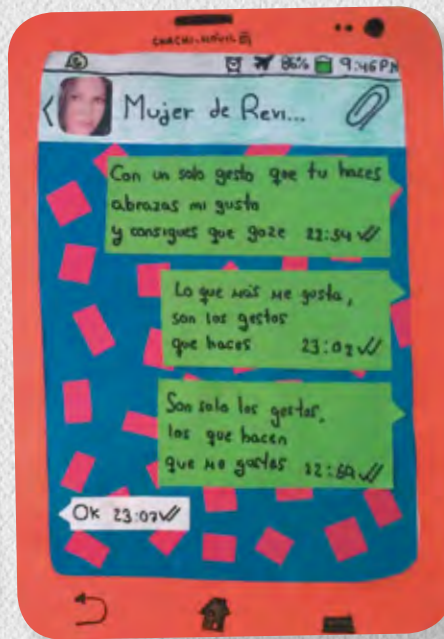 CHACHI-MÓVIL
86% 9:46PM
Mujer de Revi...
Con un solo gesto que tu haces
abrazas mi gusto
y consigues que goze 22:54
Lo que más me gusta,
son los gestos
que haces 23:02
Son solo los gestos,
los que hacen
que me gastes 22:59
Ok 23:07